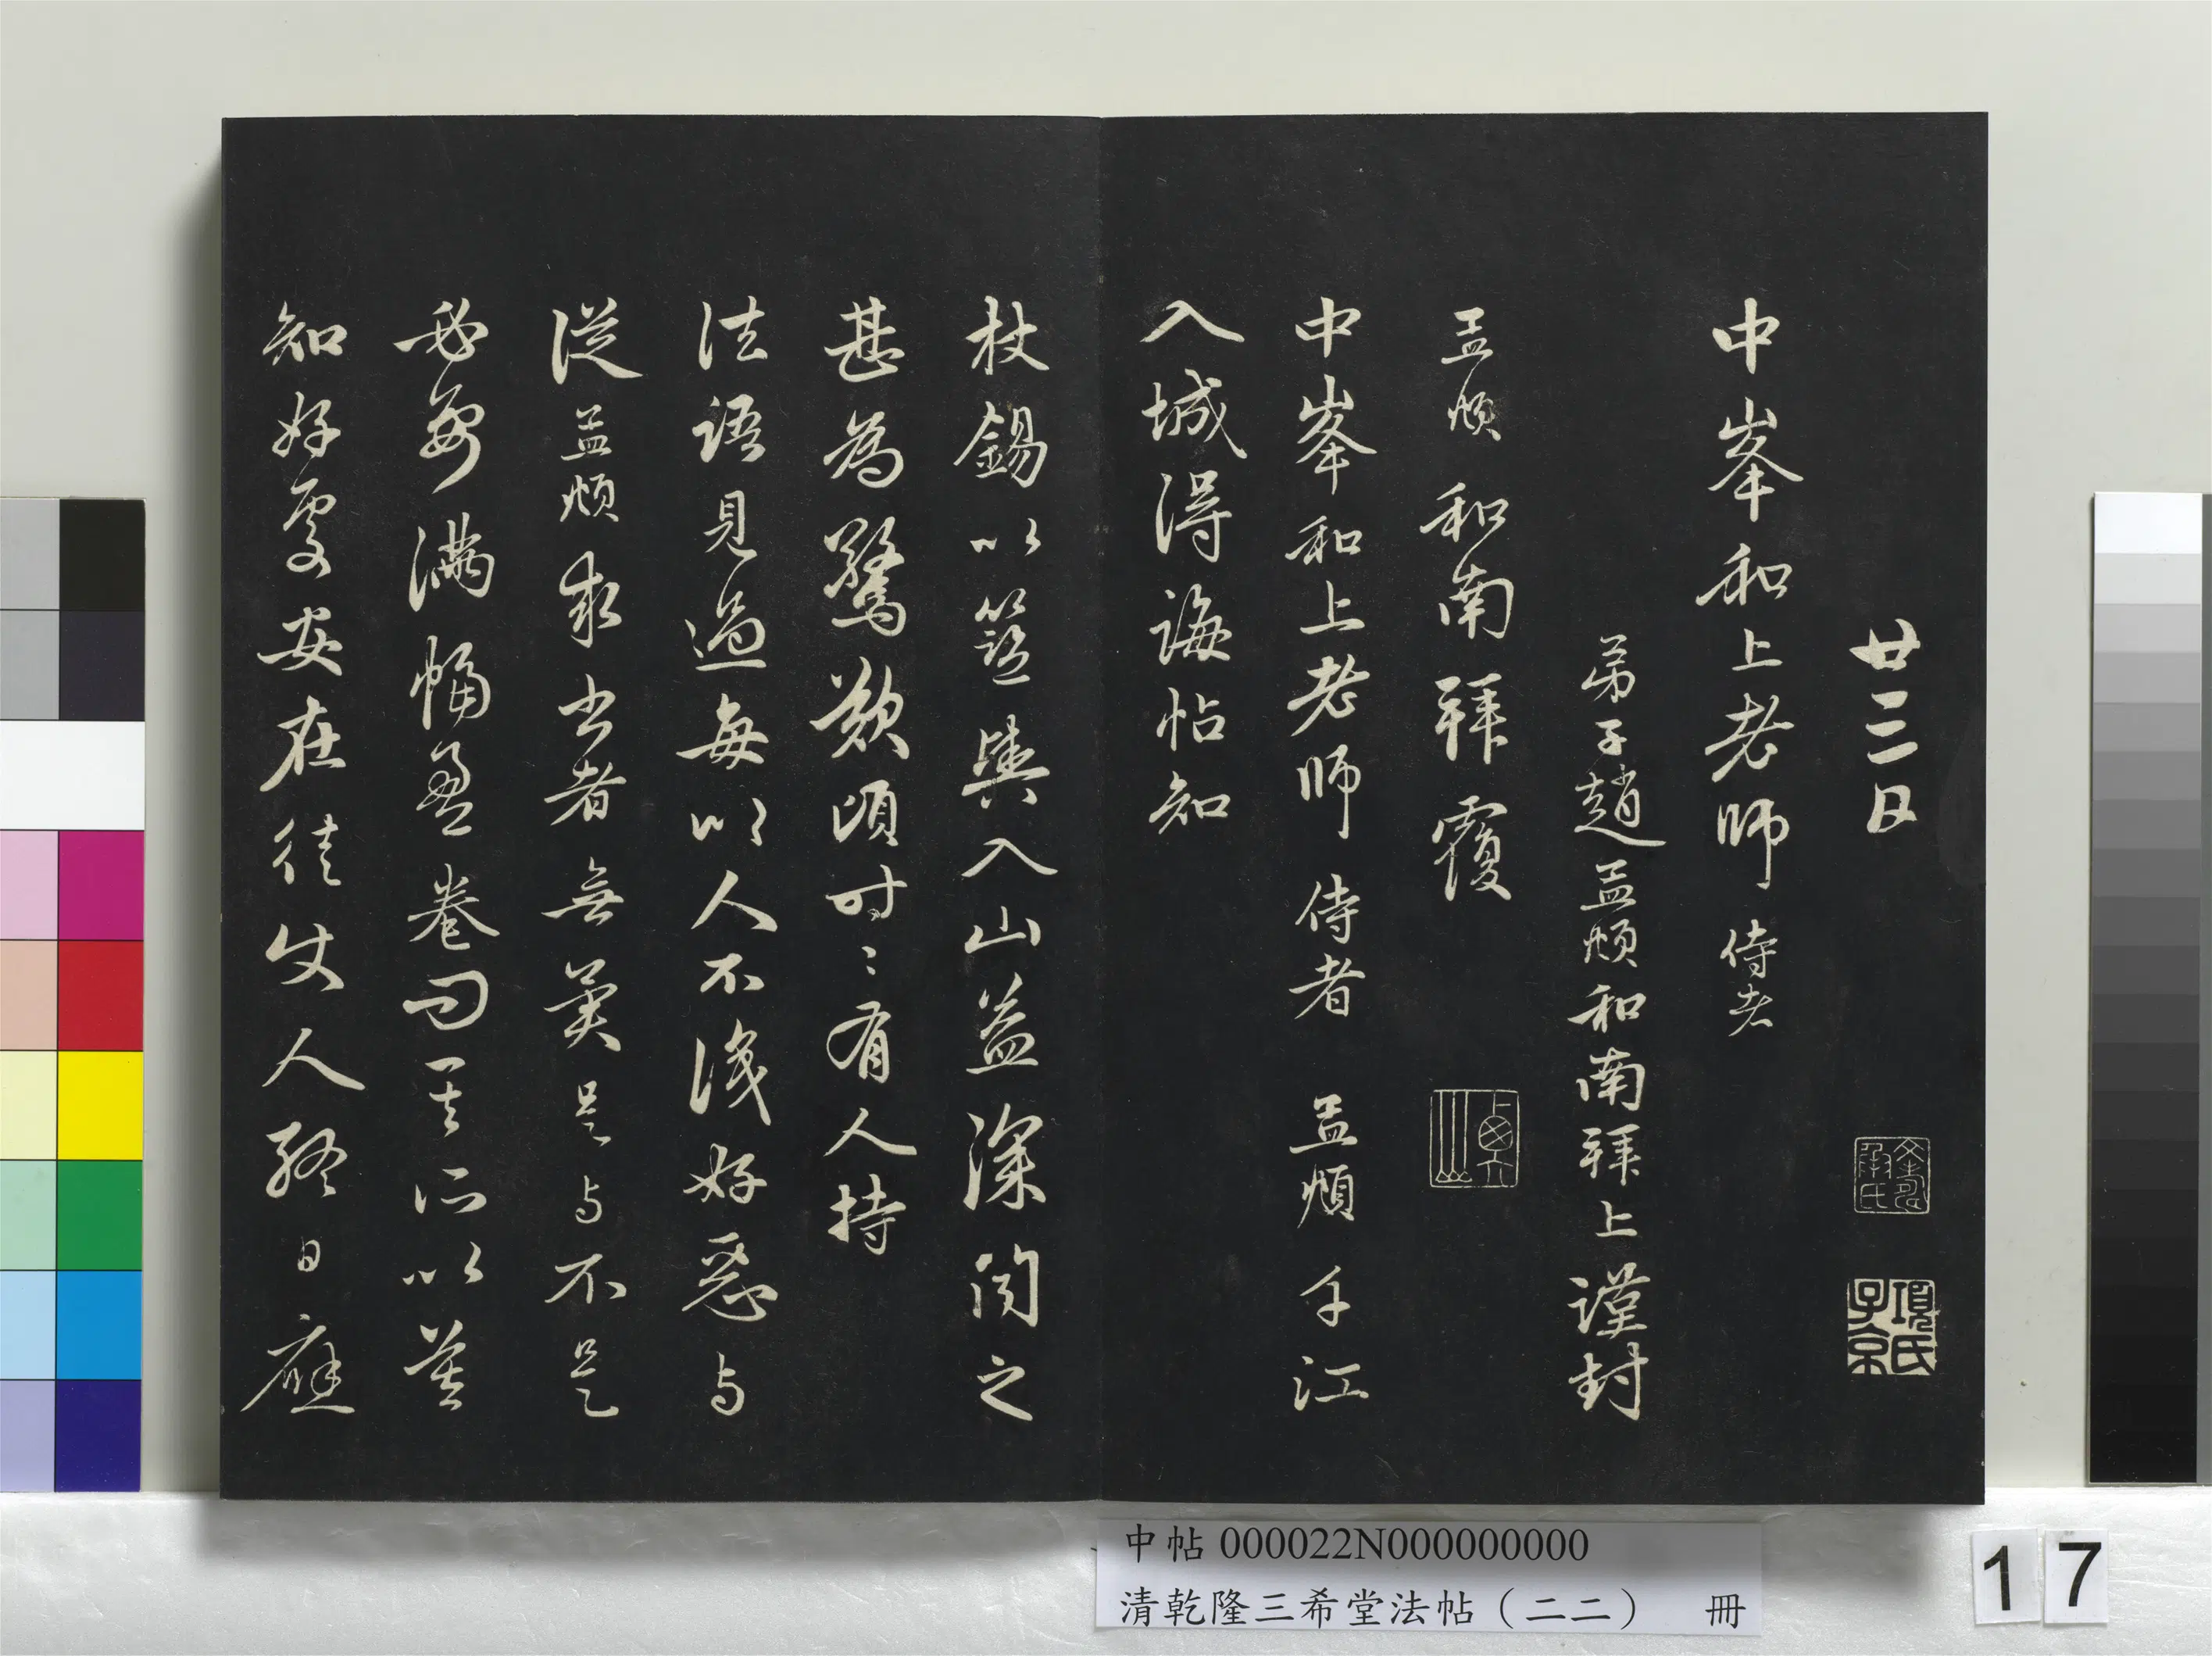 廿三日
中峯和上老師侍者
弟子趙孟頫和南拜上謹封
孟頫和南拜覆
中峯和上老師侍者 孟頫手江
入城得誨帖知
杖錫以籃輿入山益深聞之
甚為驚歎頃時〻有人持
法語見過每以人不識好惡与
從孟頫求書者無異是与不是
必要滿幅盈卷問其所以莫
知好處安在徒使人終日應
項氏子京
中帖 000022N000000000
清乾隆三希堂法帖（二二） 冊
17